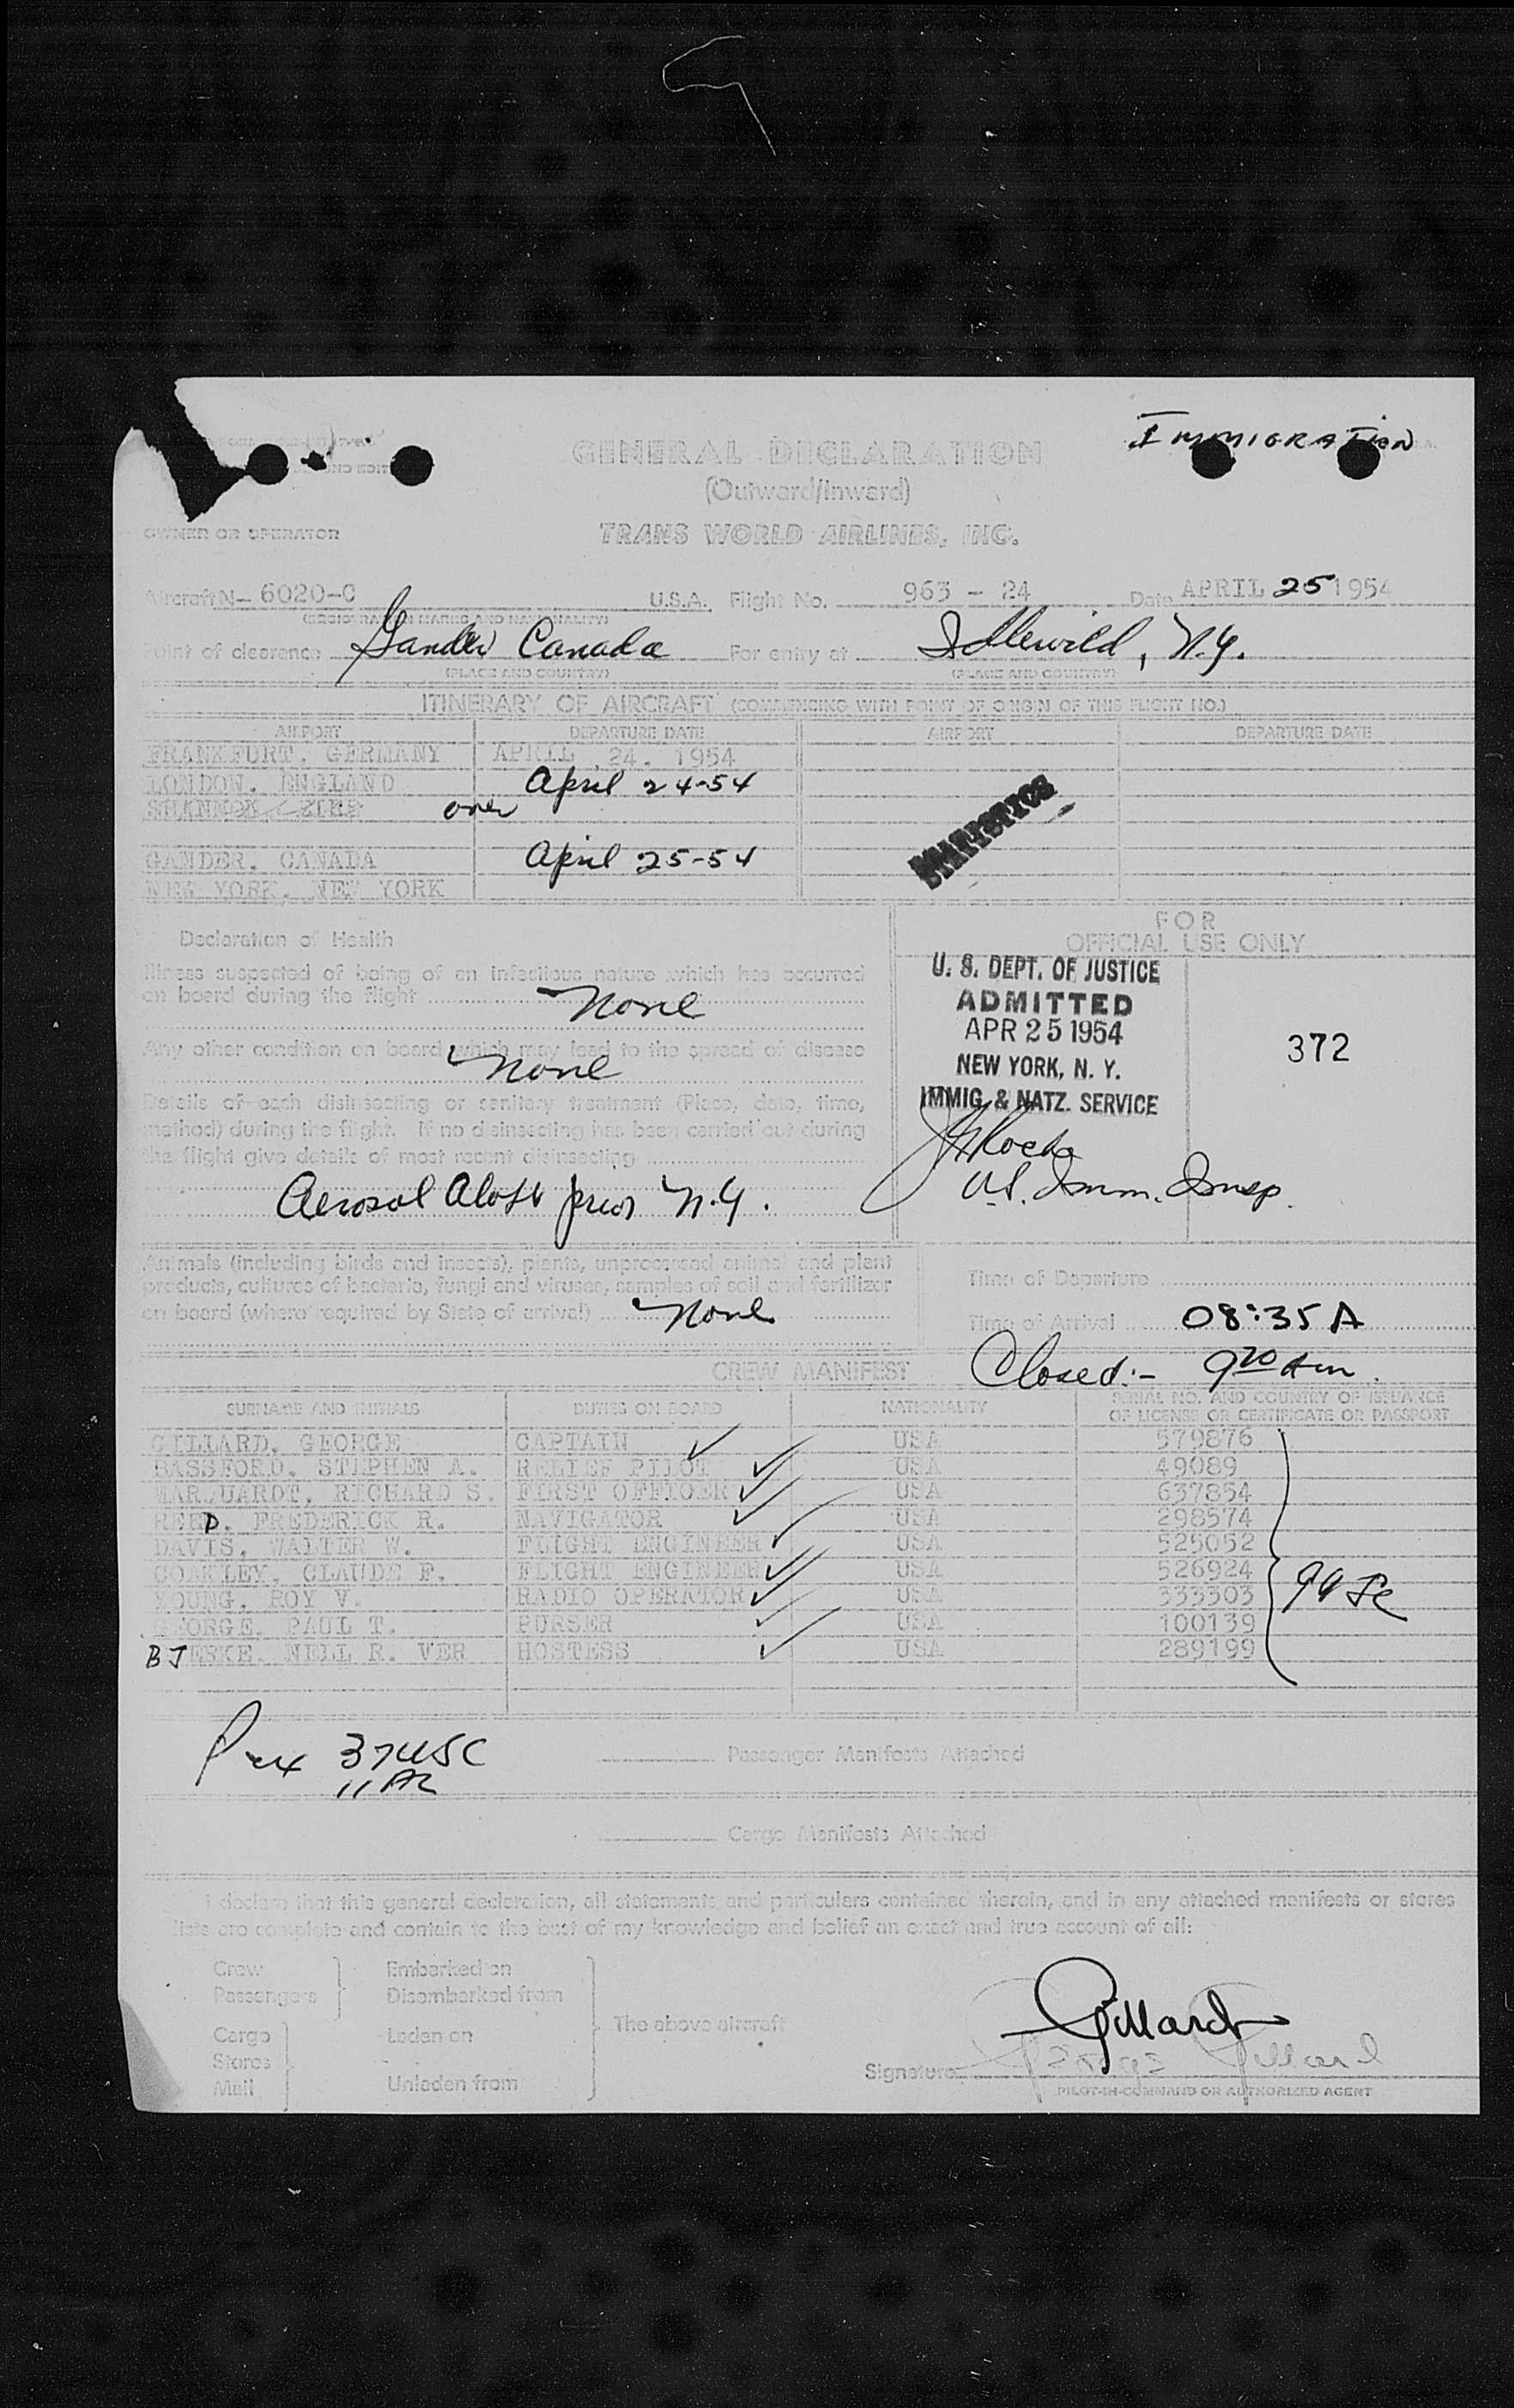 IMMIGRATION
GENERAL DECLARATION
(Outward/Inward)
OWNER OR OPERATOR
TRANS WORLD AIRLINES, INC.
Aircraft N- 6020-C U.S.A. Flight No. 963 - 24 Date APRIL 25 1954
(REGISTRATION MARKS AND NATIONALITY)
Point of clearance Gander Canada For entry at Idlewild, N.Y.
(PLACE AND COUNTRY) (PLACE AND COUNTRY)
ITINERARY OF AIRCRAFT (COMMENCING WITH POINT OF ORIGIN OF THIS FLIGHT NO.)
AIRPORT DEPARTURE DATE AIRPORT DEPARTURE DATE
FRANKFURT, GERMANY APRIL 24, 1954
LONDON, ENGLAND April 24-54
SHANNON, EIRE over
GANDER, CANADA April 25-54
NEW YORK, NEW YORK
STATISTICS
Declaration of Health
Illness suspected of being of an infectious nature which has occurred
on board during the flight None
Any other condition on board which may lead to the spread of disease
None
Details of each disinsecting or sanitary treatment (Place, date, time,
method) during the flight. If no disinsecting has been carried out during
the flight give details of most recent disinsecting
Aerosol Aloft prior N.Y.
FOR
OFFICIAL USE ONLY
U. S. DEPT. OF JUSTICE
ADMITTED
APR 25 1954
NEW YORK, N. Y.
IMMIG. & NATZ. SERVICE
372
U.S. Imm. Insp.
Animals (including birds and insects), plants, unprocessed animal and plant
products, cultures of bacteria, fungi and viruses, samples of soil and fertilizer
on board (where required by State of arrival) None
Time of Departure
Time of Arrival 08:35 A
Closed:- 9 20 Am.
CREW MANIFEST
SURNAME AND INITIALS DUTIES ON BOARD NATIONALITY SERIAL NO. AND COUNTRY OF ISSUANCE
OF LICENSE OR CERTIFICATE OR PASSPORT
GILLARD, GEORGE CAPTAIN USA 579876
BASSFORD, STEPHEN A. RELIEF PILOT USA 49089
MARQUARDT, RICHARD S. FIRST OFFICER USA 637854
REED, FREDERICK R. NAVIGATOR USA 298574
DAVIS, WALTER W. FLIGHT ENGINEER USA 525052
COAKLEY, CLAUDE F. FLIGHT ENGINEER USA 526924
YOUNG, ROY V. RADIO OPERATOR USA 333303
GEORGE, PAUL T. PURSER USA 100139
BJERKE, NELL R. VER HOSTESS USA 289199
Pax 37 USC
11 AL
Passenger Manifests Attached
Cargo Manifests Attached
I declare that this general declaration, all statements and particulars contained therein, and in any attached manifests or stores
lists are complete and contain to the best of my knowledge and belief an exact and true account of all:
Crew
Passengers
Embarked on
Disembarked from
Cargo
Stores
Mail
Laden on
Unladen from
The above aircraft
Gillard
Signature George Gillard
PILOT-IN-COMMAND OR AUTHORIZED AGENT